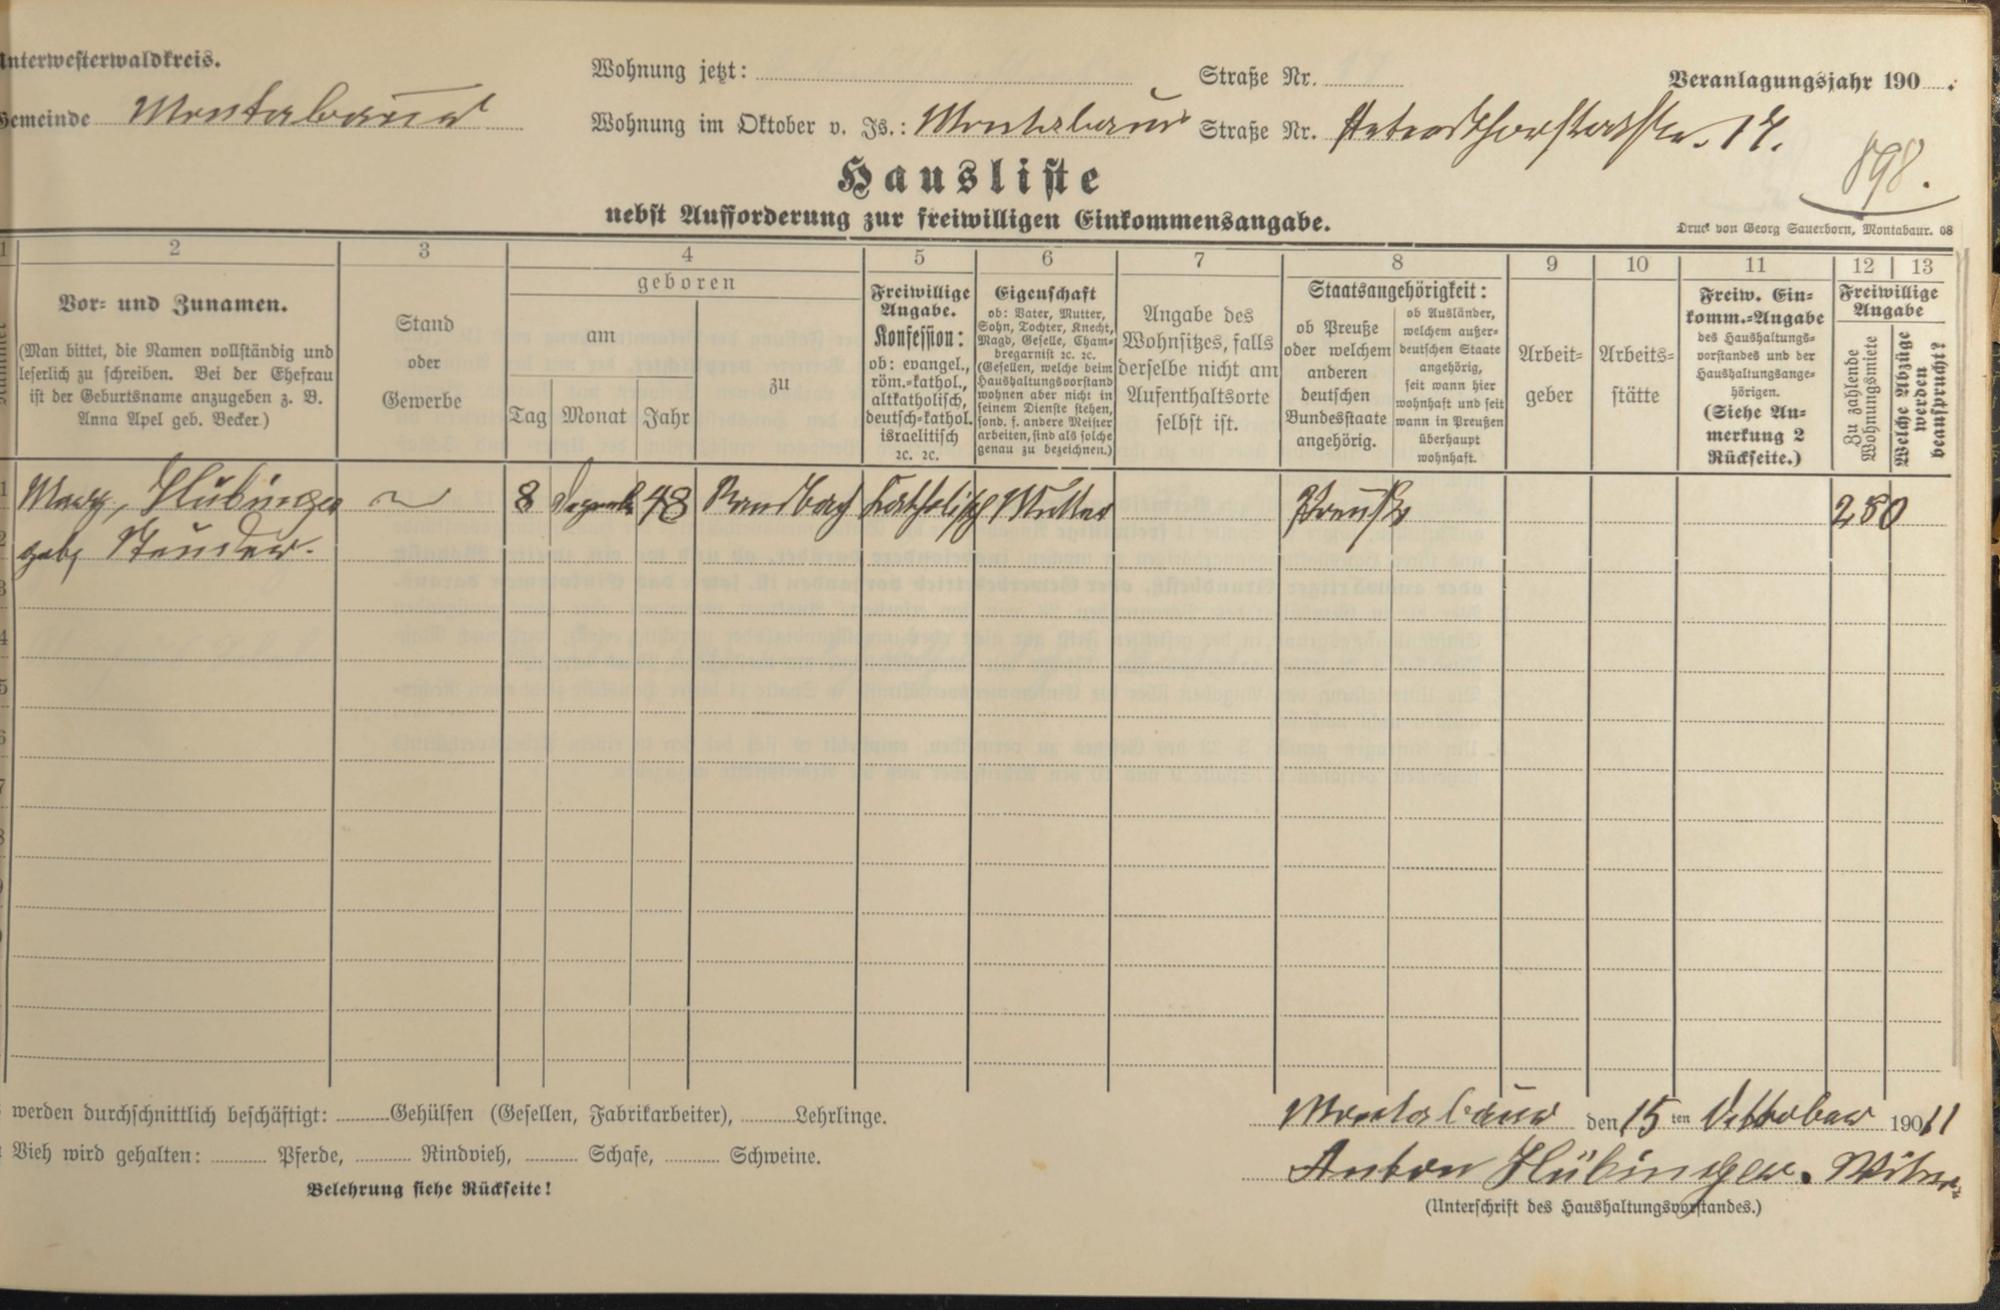 Unterwesterwaldkreis.
Wohnung jetzt: Straße Nr.
Veranlagungsjahr 190 .
Gemeinde Montabaur
Wohnung im Oktober v. Js.: Montabaur Straße Nr. 17.
898.
Hausliste
nebst Aufforderung zur freiwilligen Einkommensangabe.
Druck von Georg Sauerborn, Montabaur. 08
1 2 3 4 5 6 7 8 9 10 11 12 13
Vor- und Zunamen.
(Man bittet, die Namen vollständig und
leserlich zu schreiben. Bei der Ehefrau
ist der Geburtsname anzugeben z. B.
Anna Apel geb. Becker.)
Stand
oder
Gewerbe
geboren
am
Tag Monat Jahr
zu
Freiwillige
Angabe.
Konfession:
ob: evangel.,
röm.-kathol.,
altkatholisch,
deutsch-kathol.
israelitisch
ꝛc. ꝛc.
Eigenschaft
ob: Vater, Mutter,
Sohn, Tochter, Knecht,
Magd, Geselle, Cham-
bregarnist ꝛc. ꝛc.
(Gesellen, welche beim
Haushaltungsvorstand
wohnen aber nicht in
seinem Dienste stehen,
sond. f. andere Meister
arbeiten, sind als solche
genau zu bezeichnen.)
Angabe des
Wohnsitzes, falls
derselbe nicht am
Aufenthaltsorte
selbst ist.
Staatsangehörigkeit:
ob Preuße
oder welchem
anderen
deutschen
Bundesstaate
angehörig.
ob Ausländer,
welchem außer-
deutschen Staate
angehörig,
seit wann hier
wohnhaft und seit
wann in Preußen
überhaupt
wohnhaft.
Arbeit-
geber
Arbeits-
stätte
Freiw. Ein-
komm.-Angabe
des Haushaltungs-
vorstandes und der
Haushaltungsange-
hörigen.
(Siehe An-
merkung 2
Rückseite.)
Freiwillige
Angabe
Zu zahlende
Wohnungsmiete
Welche Abzüge
werden
beansprucht?
1 Hübinger 8 48 katholisch Mutter Preuße 250
2 geb.
3
4
5
6
7
8
9
werden durchschnittlich beschäftigt: Gehülfen (Gesellen, Fabrikarbeiter), Lehrlinge.
Montabaur den 15 ten Oktober 190 11
Vieh wird gehalten: Pferde, Rindvieh, Schafe, Schweine.
Anton Hübinger.
Belehrung siehe Rückseite!
(Unterschrift des Haushaltungsvorstandes.)